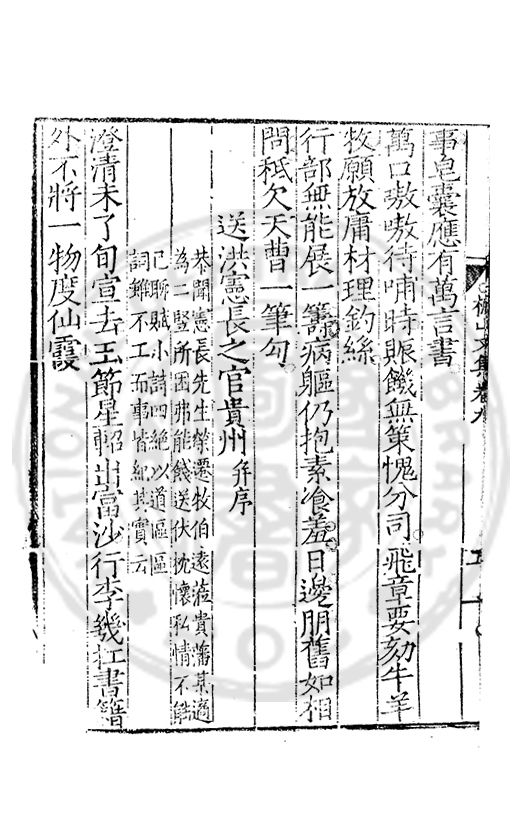 事皂囊應有萬言書
萬口嗷嗷待哺時賑饑無策愧分司飛章要劾牛羊
牧願放庸材理釣絲
行部無能展一籌病軀仍抱素飡羞日邊朋舊如相
問秪欠天曹一筆勾
送洪憲長之官貴州并序
恭聞憲長先生榮遷牧伯遠蒞貴藩某適
為二豎所困弗能餞送伏枕懷私情不能
已聊賦小詩四絕以道區區
詞雖不工而事皆紀其實云
澄清未了旬宣去玉節星軺出富沙行李幾杠書籍
外不將一物度仙霞
山文集卷九